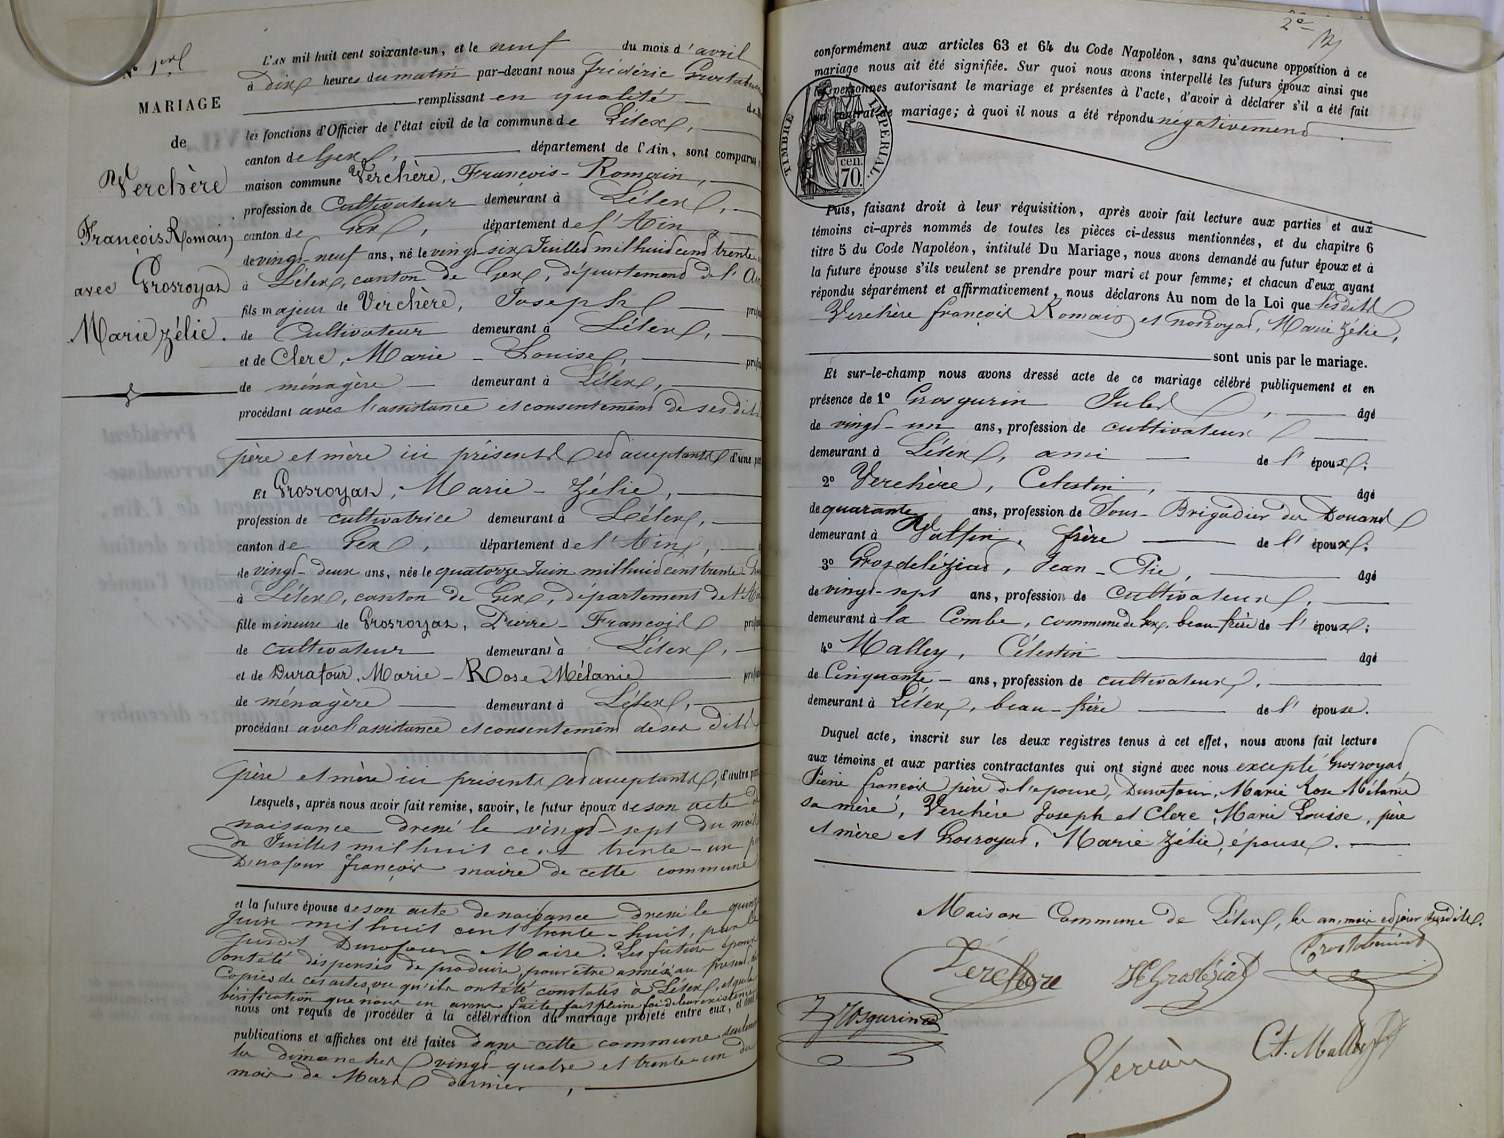 N° 1er
MARIAGE
de
Verchère
François Romain
avec Grosroyat
Marie Zélie.
L'AN mil huit cent soixante-un, et le neuf du mois d'avril
à Dix heures du matin par-devant nous frédéric
remplissant en qualité de
les fonctions d'Officier de l'état civil de la commune de Lélex,
canton de Gex, département de l'Ain, sont comparus
maison commune Verchère, François-Romain,
profession de Cultivateur demeurant à Lélex,
canton de Gex, département de l'Ain
de vingt-neuf ans, né le vingt-six Juillet mil huit cent trente
à Lélex, canton de Gex, département de l'Ain
fils majeur de Verchère, Joseph
de Cultivateur demeurant à Lélex,
et de Clerc, Marie-Louise,
de ménagère demeurant à Lélex,
procédant avec l'assistance et consentement de ses dits
père et mère ici présents et acceptants d'une part
Et Grosroyat, Marie-Zélie,
profession de cultivatrice demeurant à Lélex,
canton de Gex, département de l'Ain,
de vingt-deux ans, née le quatorze Juin mil huit cent trente
à Lélex, canton de Gex, département de l'Ain
fille mineure de Grosroyat, Pierre-François
de cultivateur demeurant à Lélex,
et de Durafour, Marie-Rose Mélanie
de ménagère demeurant à Lélex,
procédant avec l'assistance et consentement de ses dits
père et mère ici présents et acceptants, d'autre part
Lesquels, après nous avoir fait remise, savoir, le futur époux de son acte de
naissance dressé le vingt-sept du mois
de Juillet mil huit cent trente-un par
Durafour françois maire de cette commune
et la future épouse de son acte de naissance dressé le quinze
Juin mil huit cent trente-huit, par le
susdit Durafour Maire. Les futurs époux
ont été dispensés de produire, pour être annexé au présent, les
copies de ces actes, vu qu'ils ont été constatés à Lélex, et que la
vérification que nous en avons faite fait pleine foi de leur existence
nous ont requis de procéder à la célébration du mariage projeté entre eux, et dont
publications et affiches ont été faites dans cette commune seulement
les dimanches vingt-quatre et trente-un du
mois de Mars dernier,
2e
conformément aux articles 63 et 64 du Code Napoléon, sans qu'aucune opposition à ce
mariage nous ait été signifiée. Sur quoi nous avons interpellé les futurs époux ainsi que
les personnes autorisant le mariage et présentes à l'acte, d'avoir à déclarer s'il a été fait
un contrat de mariage; à quoi il nous a été répondu négativement.
TIMBRE IMPERIAL.
70. cen.
Puis, faisant droit à leur réquisition, après avoir fait lecture aux parties et aux
témoins ci-après nommés de toutes les pièces ci-dessus mentionnées, et du chapitre 6
titre 5 du Code Napoléon, intitulé Du Mariage, nous avons demandé au futur époux et à
la future épouse s'ils veulent se prendre pour mari et pour femme; et chacun d'eux ayant
répondu séparément et affirmativement, nous déclarons Au nom de la Loi que lesdits
Verchère françois Romain et Grosroyat, Marie Zélie,
sont unis par le mariage.
Et sur-le-champ nous avons dressé acte de ce mariage célébré publiquement et en
présence de 1° Grosgurin Jules, âgé
de vingt-un ans, profession de cultivateur
demeurant à Lélex, ami de l'époux;
2° Verchère, Célestin, âgé
de quarante ans, profession de Sous-Brigadier des Douanes
demeurant à frère de l'époux;
3° Grosdeléziat, Jean-Pie, âgé
de vingt-sept ans, profession de cultivateur,
demeurant à la Combe, commune de Gex, beau-frère de l'époux;
4° Malley, Célestin âgé
de Cinquante ans, profession de cultivateur,
demeurant à Lélex, beau-frère de l'épouse.
Duquel acte, inscrit sur les deux registres tenus à cet effet, nous avons fait lecture
aux témoins et aux parties contractantes qui ont signé avec nous excepté Grosroyat,
Pierre françois père de l'épouse, Durafour, Marie Rose Mélanie
sa mère, Verchère Joseph et Clerc, Marie Louise, père
et mère et Grosroyat, Marie Zélie, épouse.
Maison Commune de Lélex, les an, mois et jour susdits.
Verchère
J Grosgurin
Ct. Malley